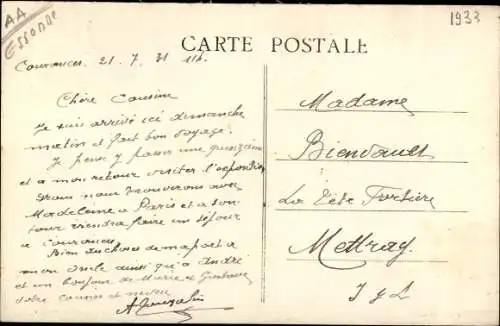 AA
ESSONNE
1933
CARTE POSTALE
Courances 21.7.31 11h.
Chère Cousine
Je suis arrivé ici dimanche
matin et fait bon voyage.
Je pense y passer une quinzaine
et a mon retour visiter l'exposition
Nous nous trouverons avec
Madeleine a Paris et a son
tour viendra faire un séjour
a Courances
Bien des choses de ma part a
mon oncle ainsi qu'a André
et un bonjour de Marie et Gustave
votre cousin et neveu
Madame
Bienvault
La Tête
Mettray
I g L